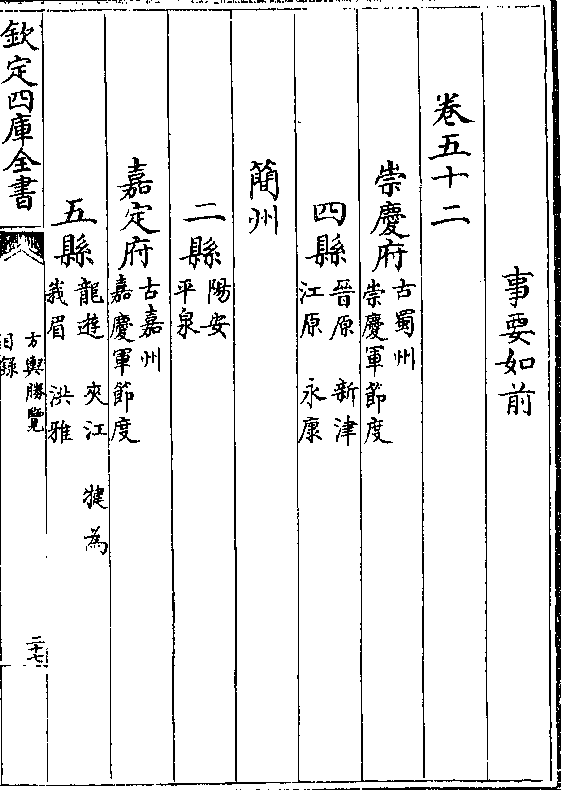 事要如前
卷五十二
崇慶府 古蜀州
崇慶軍節度
四縣 晉原 新津
江原 永康
簡州
二縣 陽安
平泉
嘉定府 古嘉州
嘉慶軍節度
五縣 龍遊 夾江 犍為
峩眉 洪雅
欽定四庫全書
方輿勝覽
目錄
二十七